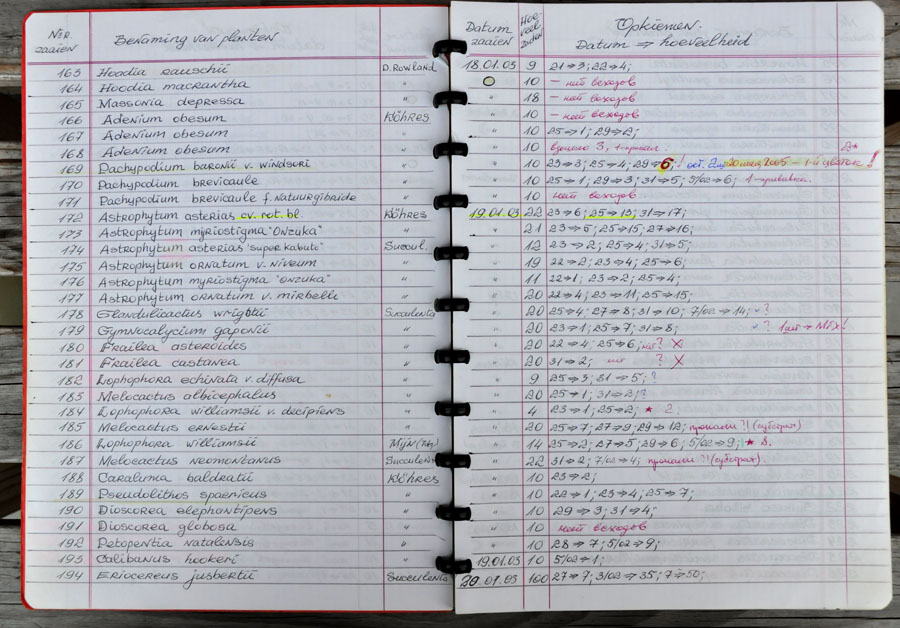 Nr. zaaien Benaming van planten Datum zaaien Hoeveel zaden Opkiemen. Datum ⇒ hoeveelheid
163 Hoodia rauschii D.Rowland 18.01.03 9 21⇒3; 22⇒4;
164 Hoodia macrantha " 10 – нет всходов
165 Massonia depressa " " 18 – нет всходов
166 Adenium obesum Köhres " 10 – нет всходов
167 Adenium obesum " " 10 25⇒1; 29⇒2;
168 Adenium obesum " " 10 3, 2★
169 Pachypodium baronii v. windsori " " 10 23⇒3; 25⇒4; 29⇒6! ост. 2 2005 – 1-й цветок!
170 Pachypodium brevicaule " " 10 25⇒1; 29⇒3; 31⇒5; 5/02⇒6; 1-прививка.
171 Pachypodium brevicaule f. Natuurgibride " " 10 нет всходов.
172 Astrophytum asterias cv. rot. bl. Köhres 19.01.03 22 23⇒6; 25⇒13; 31⇒17;
173 Astrophytum myriostigma "Onzuka" " " 21 23⇒5; 25⇒15; 27⇒16;
174 Astrophytum asterias "super kabuto" Succul. " 12 23⇒2; 25⇒4; 31⇒5;
175 Astrophytum ornatum v. niveum " " 19 22⇒2; 23⇒4; 25⇒6;
176 Astrophytum myriostigma "onzuka" " " 11 22⇒1; 23⇒2; 25⇒4;
177 Astrophytum ornatum v. mirbelli " " 20 22⇒4; 23⇒11; 25⇒15;
178 Glandulicactus wrigtii Succulenta " 20 25⇒4; 27⇒8; 31⇒10; 7/02⇒14; ?
179 Gymnocalycium gaponii " " 20 23⇒1; 25⇒7; 31⇒8; ? 1
180 Frailea asteroides " " 20 22⇒4; 25⇒6; нет? X
181 Frailea castanea " " 20 31⇒2; нет ? X
182 Lophophora echinata v. diffusa " " 9 25⇒3; 31⇒5; ?
183 Melocactus albicephalus " " 20 25⇒1; 31⇒2; ?
184 Lophophora williamsii v. decipiens " " 4 23⇒1; 25⇒2; ★ 2.
185 Melocactus ernestii " " 20 25⇒7; 27⇒9; 29⇒12; пропали?! (субстрат)
186 Lophophora williamsii Mijn " 14 25⇒2; 27⇒5; 29⇒6; 5/02⇒9; ★ 8.
187 Melocactus neomontanus Succulenta " 22 31⇒2; 7/02⇒4; пропали?! (субстрат).
188 Caraluma baldratii Köhres " 10 23⇒2;
189 Pseudolithos spaericus " " 10 22⇒1; 23⇒4; 25⇒7;
190 Dioscorea elephantipens " " 10 29⇒3; 31⇒4;
191 Dioscorea globosa " " 10 нет всходов
192 Petopentia natalensis " " 10 28⇒7; 5/02⇒9;
193 Calibanus hookeri " 19.01.03 10 5/02⇒1;
194 Eriocereus jusbertii Succulenta 20.01.03 100 27⇒7; 3/02⇒35; 7⇒50;